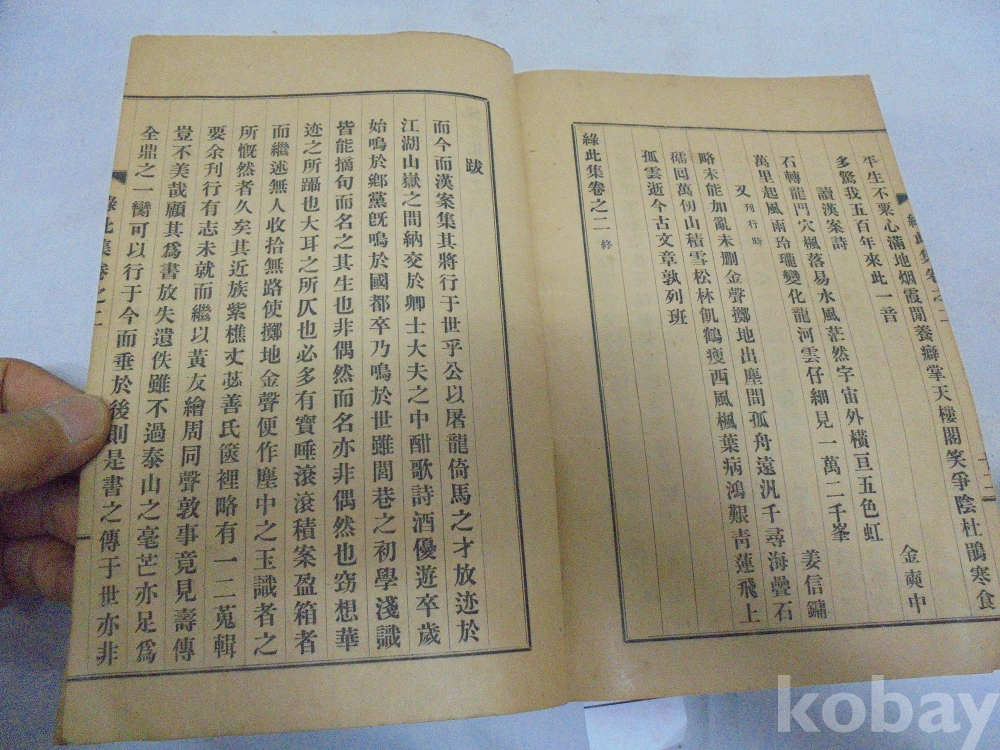 平生不眾心滿地烟霞閒養癖掌天樓閣笑爭陰杜鵑寒食
多驚我五百年來此一音
金奭中
讀漢案詩
石轉龍門穴楓落易水風茫然宇宙外橫亘五色虹
姜信鏞
萬里起風雨玲瓏變化龍河雲仔細見一萬二千峯
又 刊行時
略未能加亂未刪金聲擲地出塵間孤舟遠汎千尋海疊石
礵回萬仞山積雪松林飢鶴瘦西風楓葉病鴻艱靑蓮飛上
孤雲逝今古文章孰列班
綠此集卷之二 終
綠此集卷之二
十二
跋
而今而漢案集其將行于世乎公以屠龍倚馬之才放迹於
江湖山嶽之間納交於卿士大夫之中酣歌詩酒優遊卒歲
始鳴於鄕黨旣鳴於國都卒乃鳴於世雖閭巷之初學淺識
皆能摘句而名之其生也非偶然而名亦非偶然也窃想華
迹之所躡也大耳之所仄也必多有寶唾滾滾積案盈箱者
而繼述無人收拾無路使擲地金聲便作塵中之玉識者之
所慨然者久矣其近族紫樵丈苾善氏篋裡略有一二蒐輯
要余刊行有志未就而繼以黃友繪周同聲敦事竟見壽傳
豈不美哉顧其爲書放失遺佚雖不過泰山之毫芒亦足爲
全鼎之一臠可以行于今而垂於後則是書之傳于世亦非
綠此集卷之二
kobay